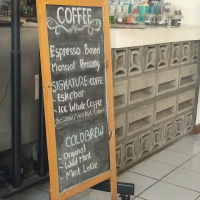 COFFEE
Espresso Based
Manual Brewing
SIGNATURE COFFEE
- Eskobar
- Ice Whale Coffee
COLD BREW
- Original
- Wild Mint
- Mint Latte